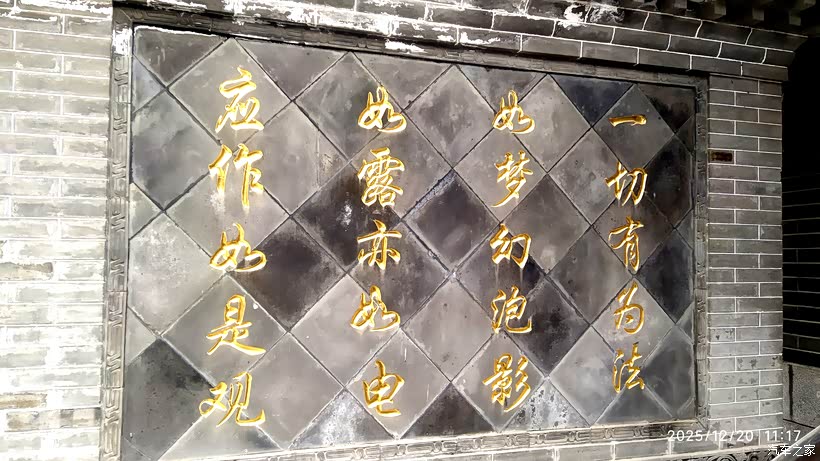 一切有为法
如梦幻泡影
如露亦如电
应作如是观
2025/12/20 11:17
汽车之家